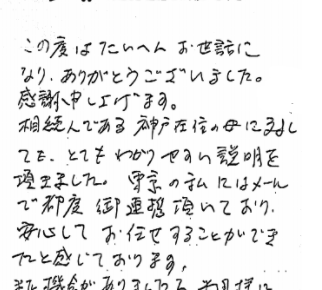 この度はたいへんお世話に
なり、ありがとうございました。
感謝申し上げます。
相続人である神戸在住の母にまし
ても、とてもわかりやすい説明を
頂きました。東京の私にはメール
で都度御連絡頂いており、
安心してお任せすることができ
たと感じております。
また機会がありましたら、